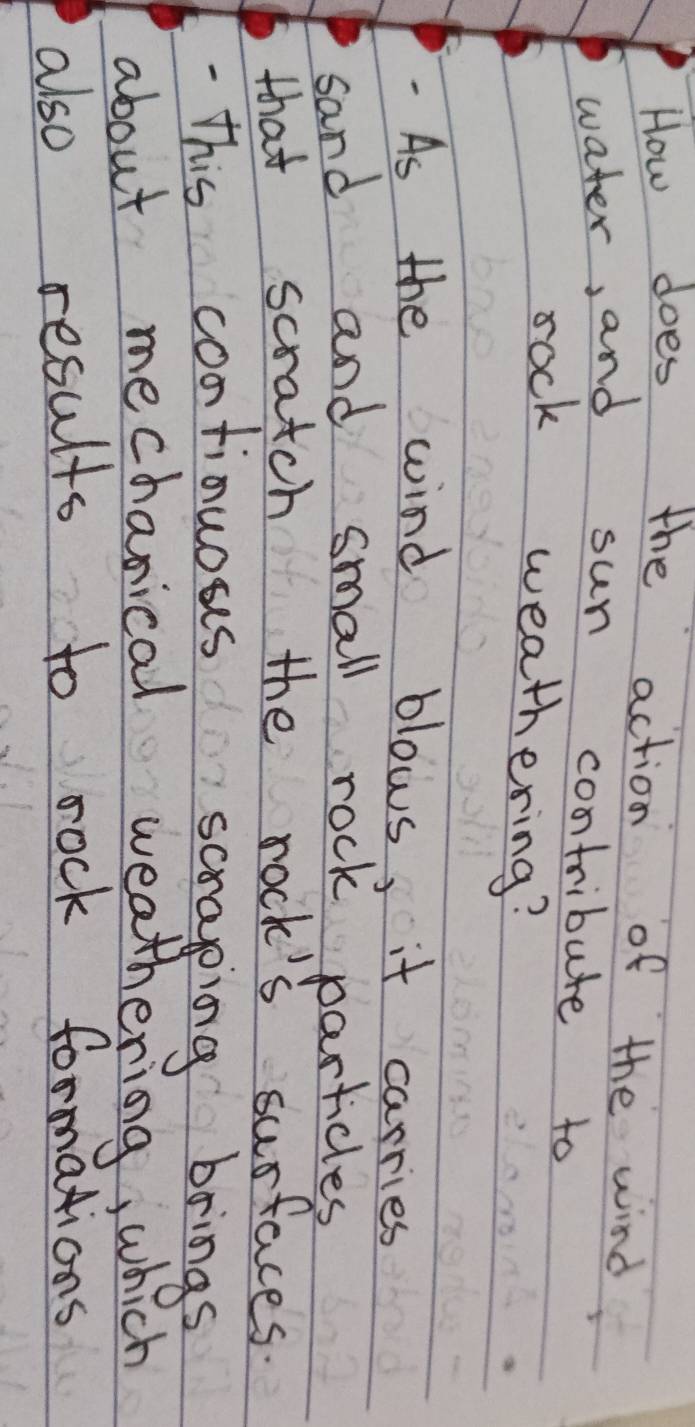 How does the action of the wind,
water, and sun contribute to
rock weathering?
- As the wind blows, it carries
sand and small rock particles
that scratch the rock's surfaces.
- This continuoses scraping brings
about mechanical weathering, which
also results to rock formations